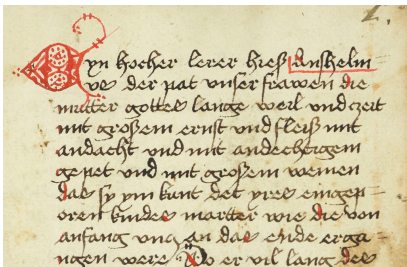 Eyn hocher lerer hieß Anshelm
der pat vnser frawen die
mutter gottes lange weil vnd czeit
mit großem ernst vnd fleiß mit
andacht vnd mit andechergem
gepet vnd mit großem weinen
das sy ym kunt det yres eingep
oren kindes martter wie die von
anfang vnd an das ende erga
ngen were Do er vil lang des